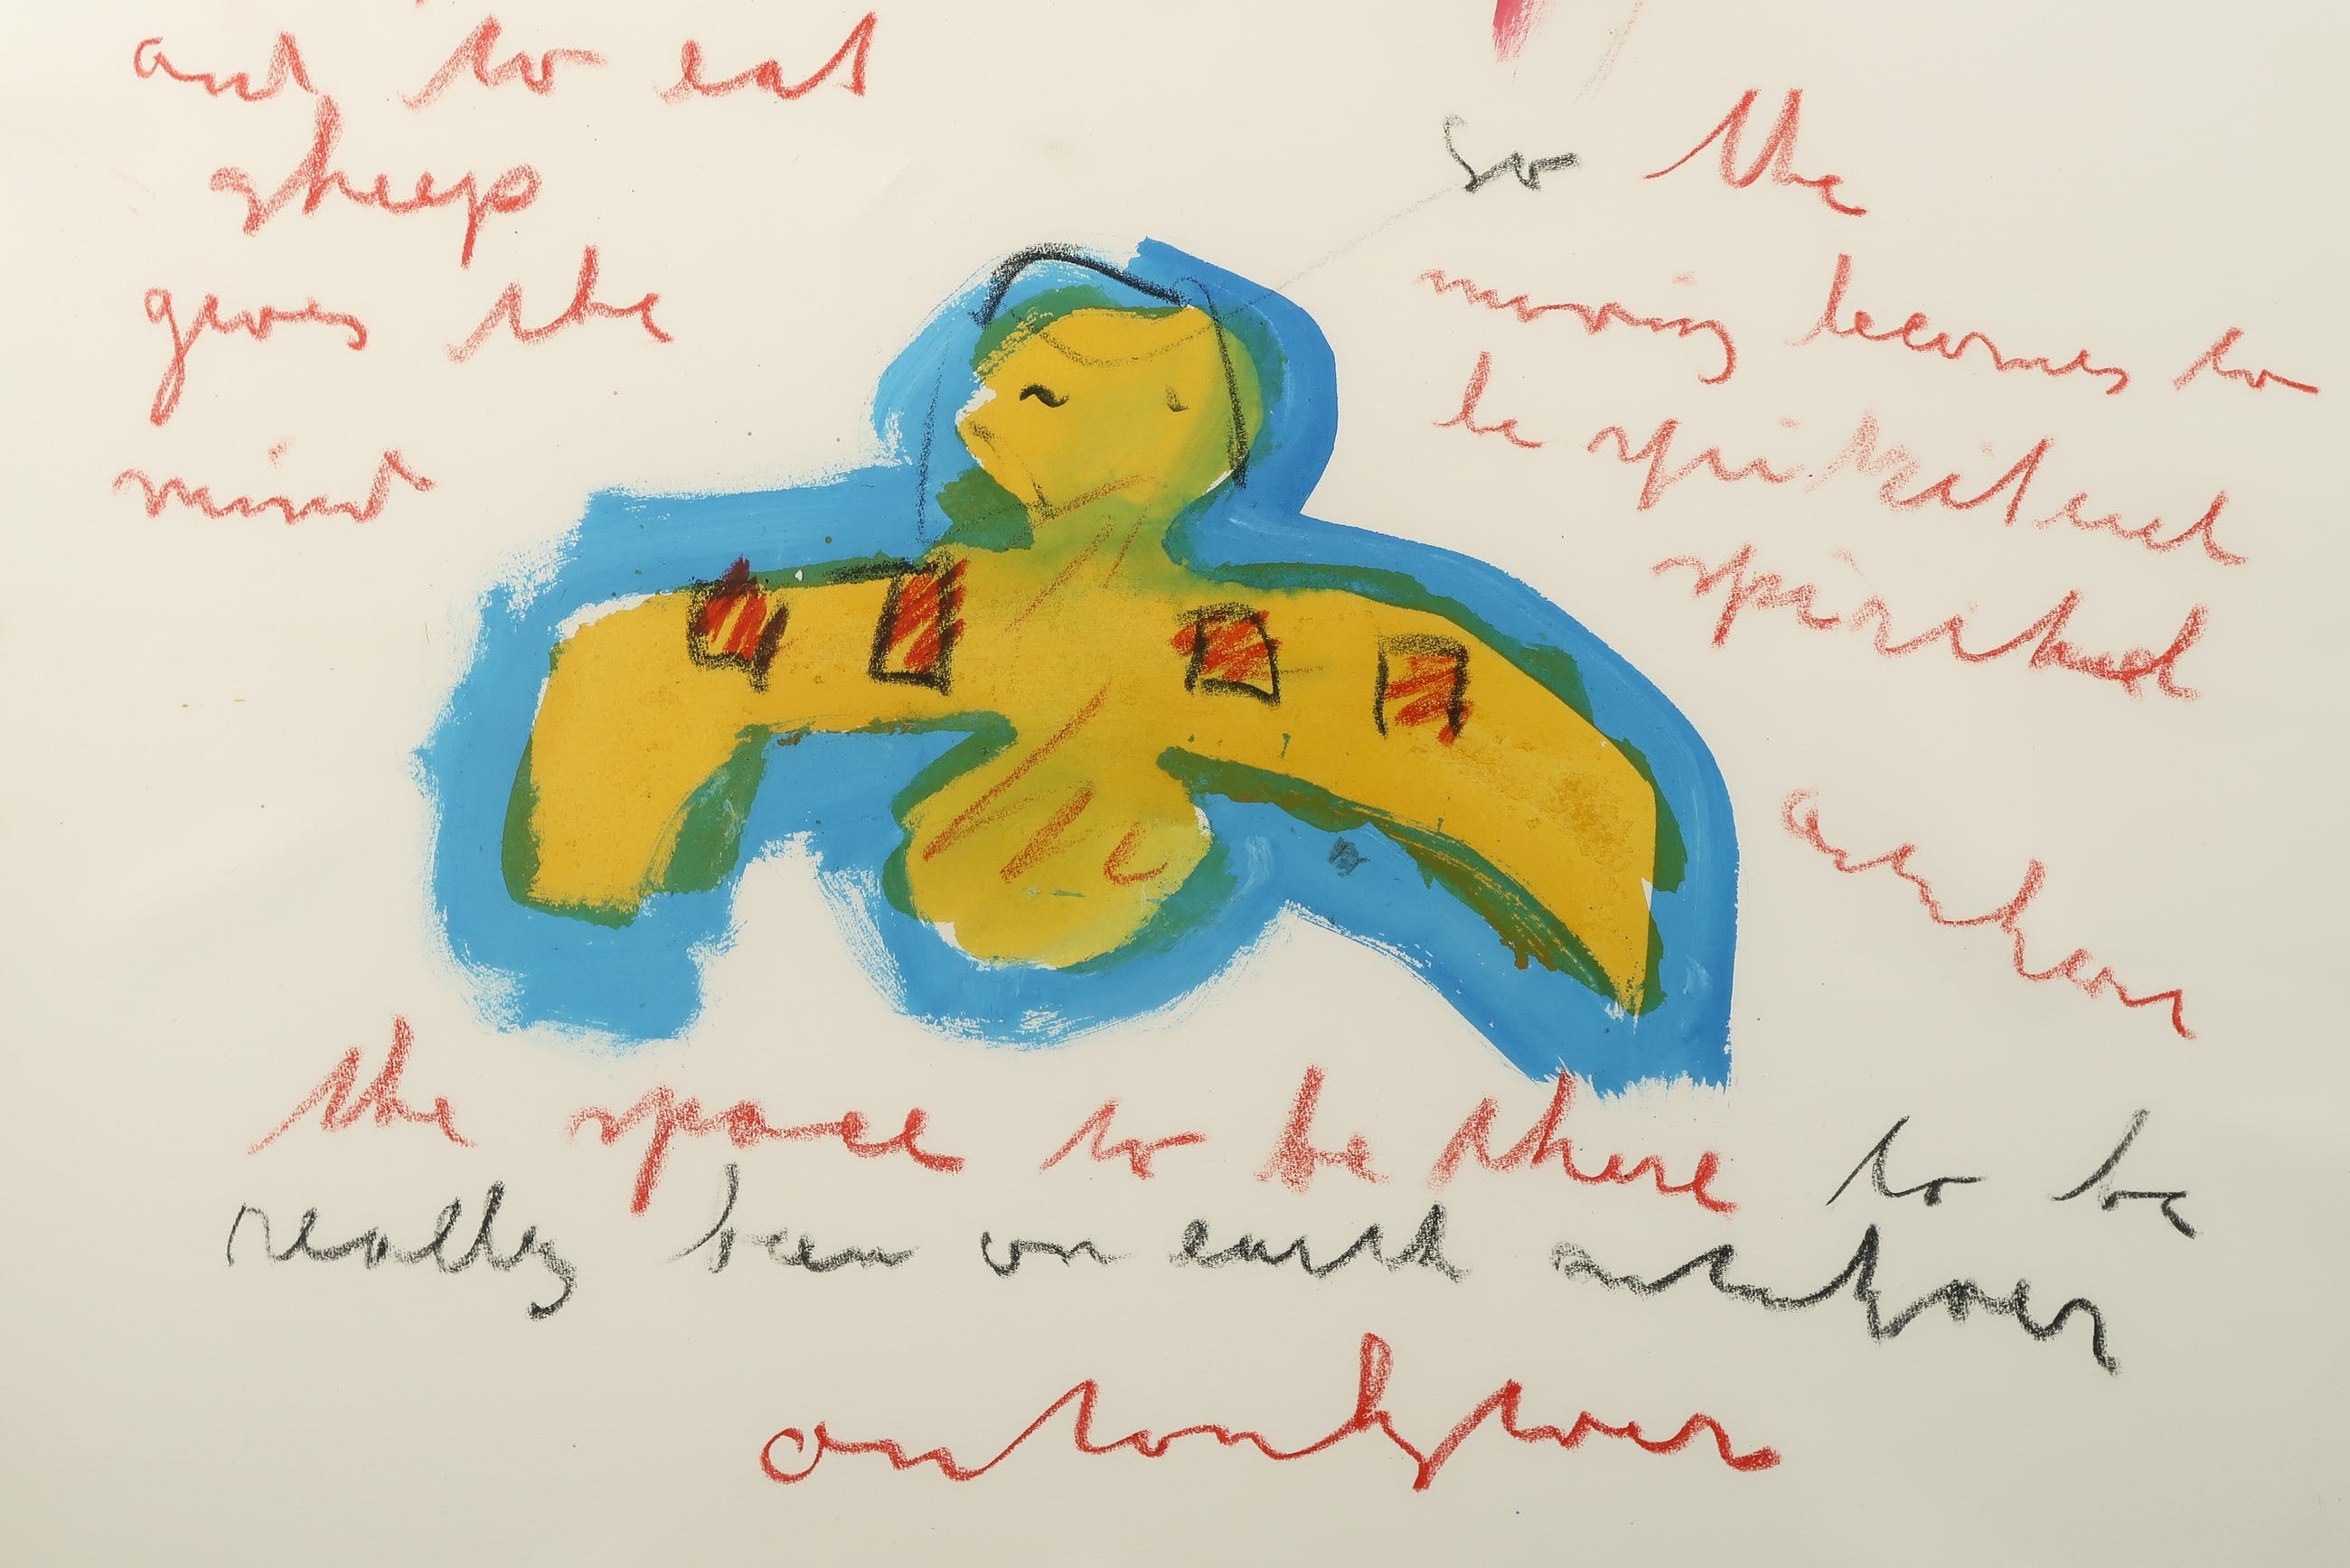 and to eat
sheep
gives the
mind
so the
moving becomes to
be spiritual
spiritual
anton
the space to be there to be
really been on earth